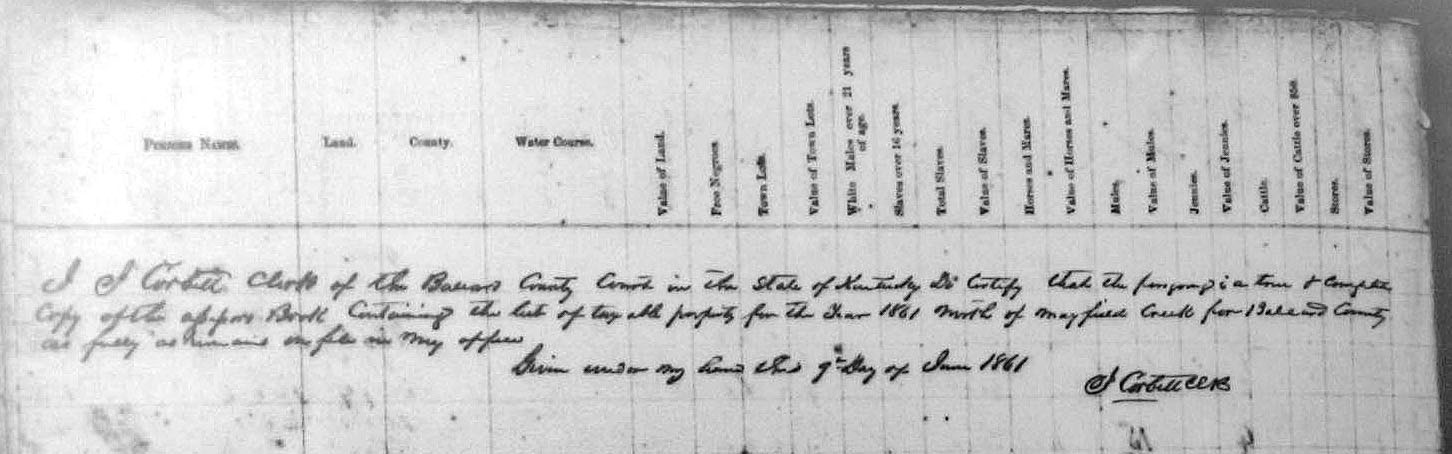 Persons Names.
Land.
County.
Water Course.
Value of Land.
Free Negroes.
Town Lots.
Value of Town Lots.
White Males over 21 years of age.
Slaves over 16 years.
Total Slaves.
Value of Slaves.
Horses and Mares.
Value of Horses and Mares.
Mules.
Value of Mules.
Jennies.
Value of Jennies.
Cattle.
Value of Cattle over $50.
Stores.
Value of Stores.
I J Corbett Clerk of the Ballard County Court in the State of Kentucky Do Certify that the foregoing is a true & complete
Copy of the assessors Book Containing the list of taxable property for the Year 1861 North of Mayfield Creek for Ballard County
as fully as remains on file in my office
Given under my hand this 9th Day of June 1861
J Corbett CLK